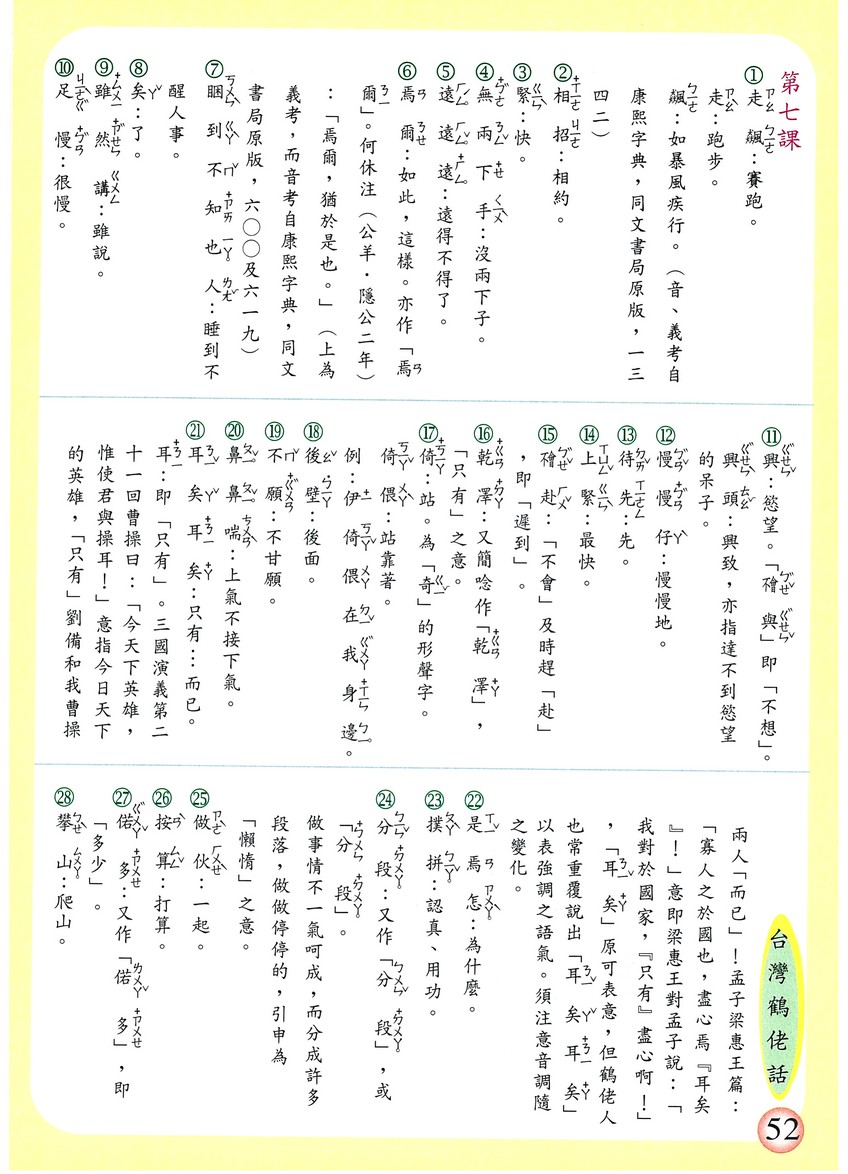 第七課
①走飆：賽跑。
走：跑步。
飆：如暴風疾行。（音、義考自
康熙字典，同文書局原版，一三
四二）
②相招：相約。
③緊：快。
④無兩下手：沒兩下子。
⑤遠遠遠：遠得不得了。
⑥焉爾：如此，這樣。亦作「焉
爾」。何休注（公羊．隱公二年）
：「焉爾，猶於是也。」（上為
義考，而音考自康熙字典，同文
書局原版，六〇〇及六一九）
⑦睏到不知也人：睡到不
醒人事。
⑧矣：了。
⑨雖然講：雖說。
⑩足慢：很慢。
⑪興：慾望。「𣍐興」即「不想」。
興頭：興致，亦指達不到慾望
的呆子。
⑫慢慢仔：慢慢地。
⑬待先：先。
⑭上緊：最快。
⑮𣍐赴：「不會」及時趕「赴」
，即「遲到」。
⑯乾澤：又簡唸作「乾澤」，
「只有」之意。
⑰倚：站。為「奇」的形聲字。
倚偎：站靠著。
例：伊倚偎在我身邊。
⑱後壁：後面。
⑲不願：不甘願。
⑳鼻鼻喘：上氣不接下氣。
㉑耳矣耳矣：只有…而已。
耳：即「只有」。三國演義第二
十一回曹操曰：「今天下英雄，
惟使君與操耳！」意指今日天下
的英雄，「只有」劉備和我曹操
兩人「而已」！孟子梁惠王篇：
「寡人之於國也，盡心焉『耳矣
』！」意即梁惠王對孟子說：「
我對於國家，『只有』盡心啊！」
，「耳矣」原可表意，但鶴佬人
也常重覆說出「耳矣耳矣」
以表強調之語氣。須注意音調隨
之變化。
㉒是焉怎：為什麼。
㉓撲拼：認真、用功。
㉔分段：又作「分段」，或
「分段」。
做事情不一氣呵成，而分成許多
段落，做做停停的，引申為
「懶惰」之意。
㉕做伙：一起。
㉖按算：打算。
㉗偌多：又作「偌多」，即
「多少」。
㉘攀山：爬山。
台灣鶴佬話
52